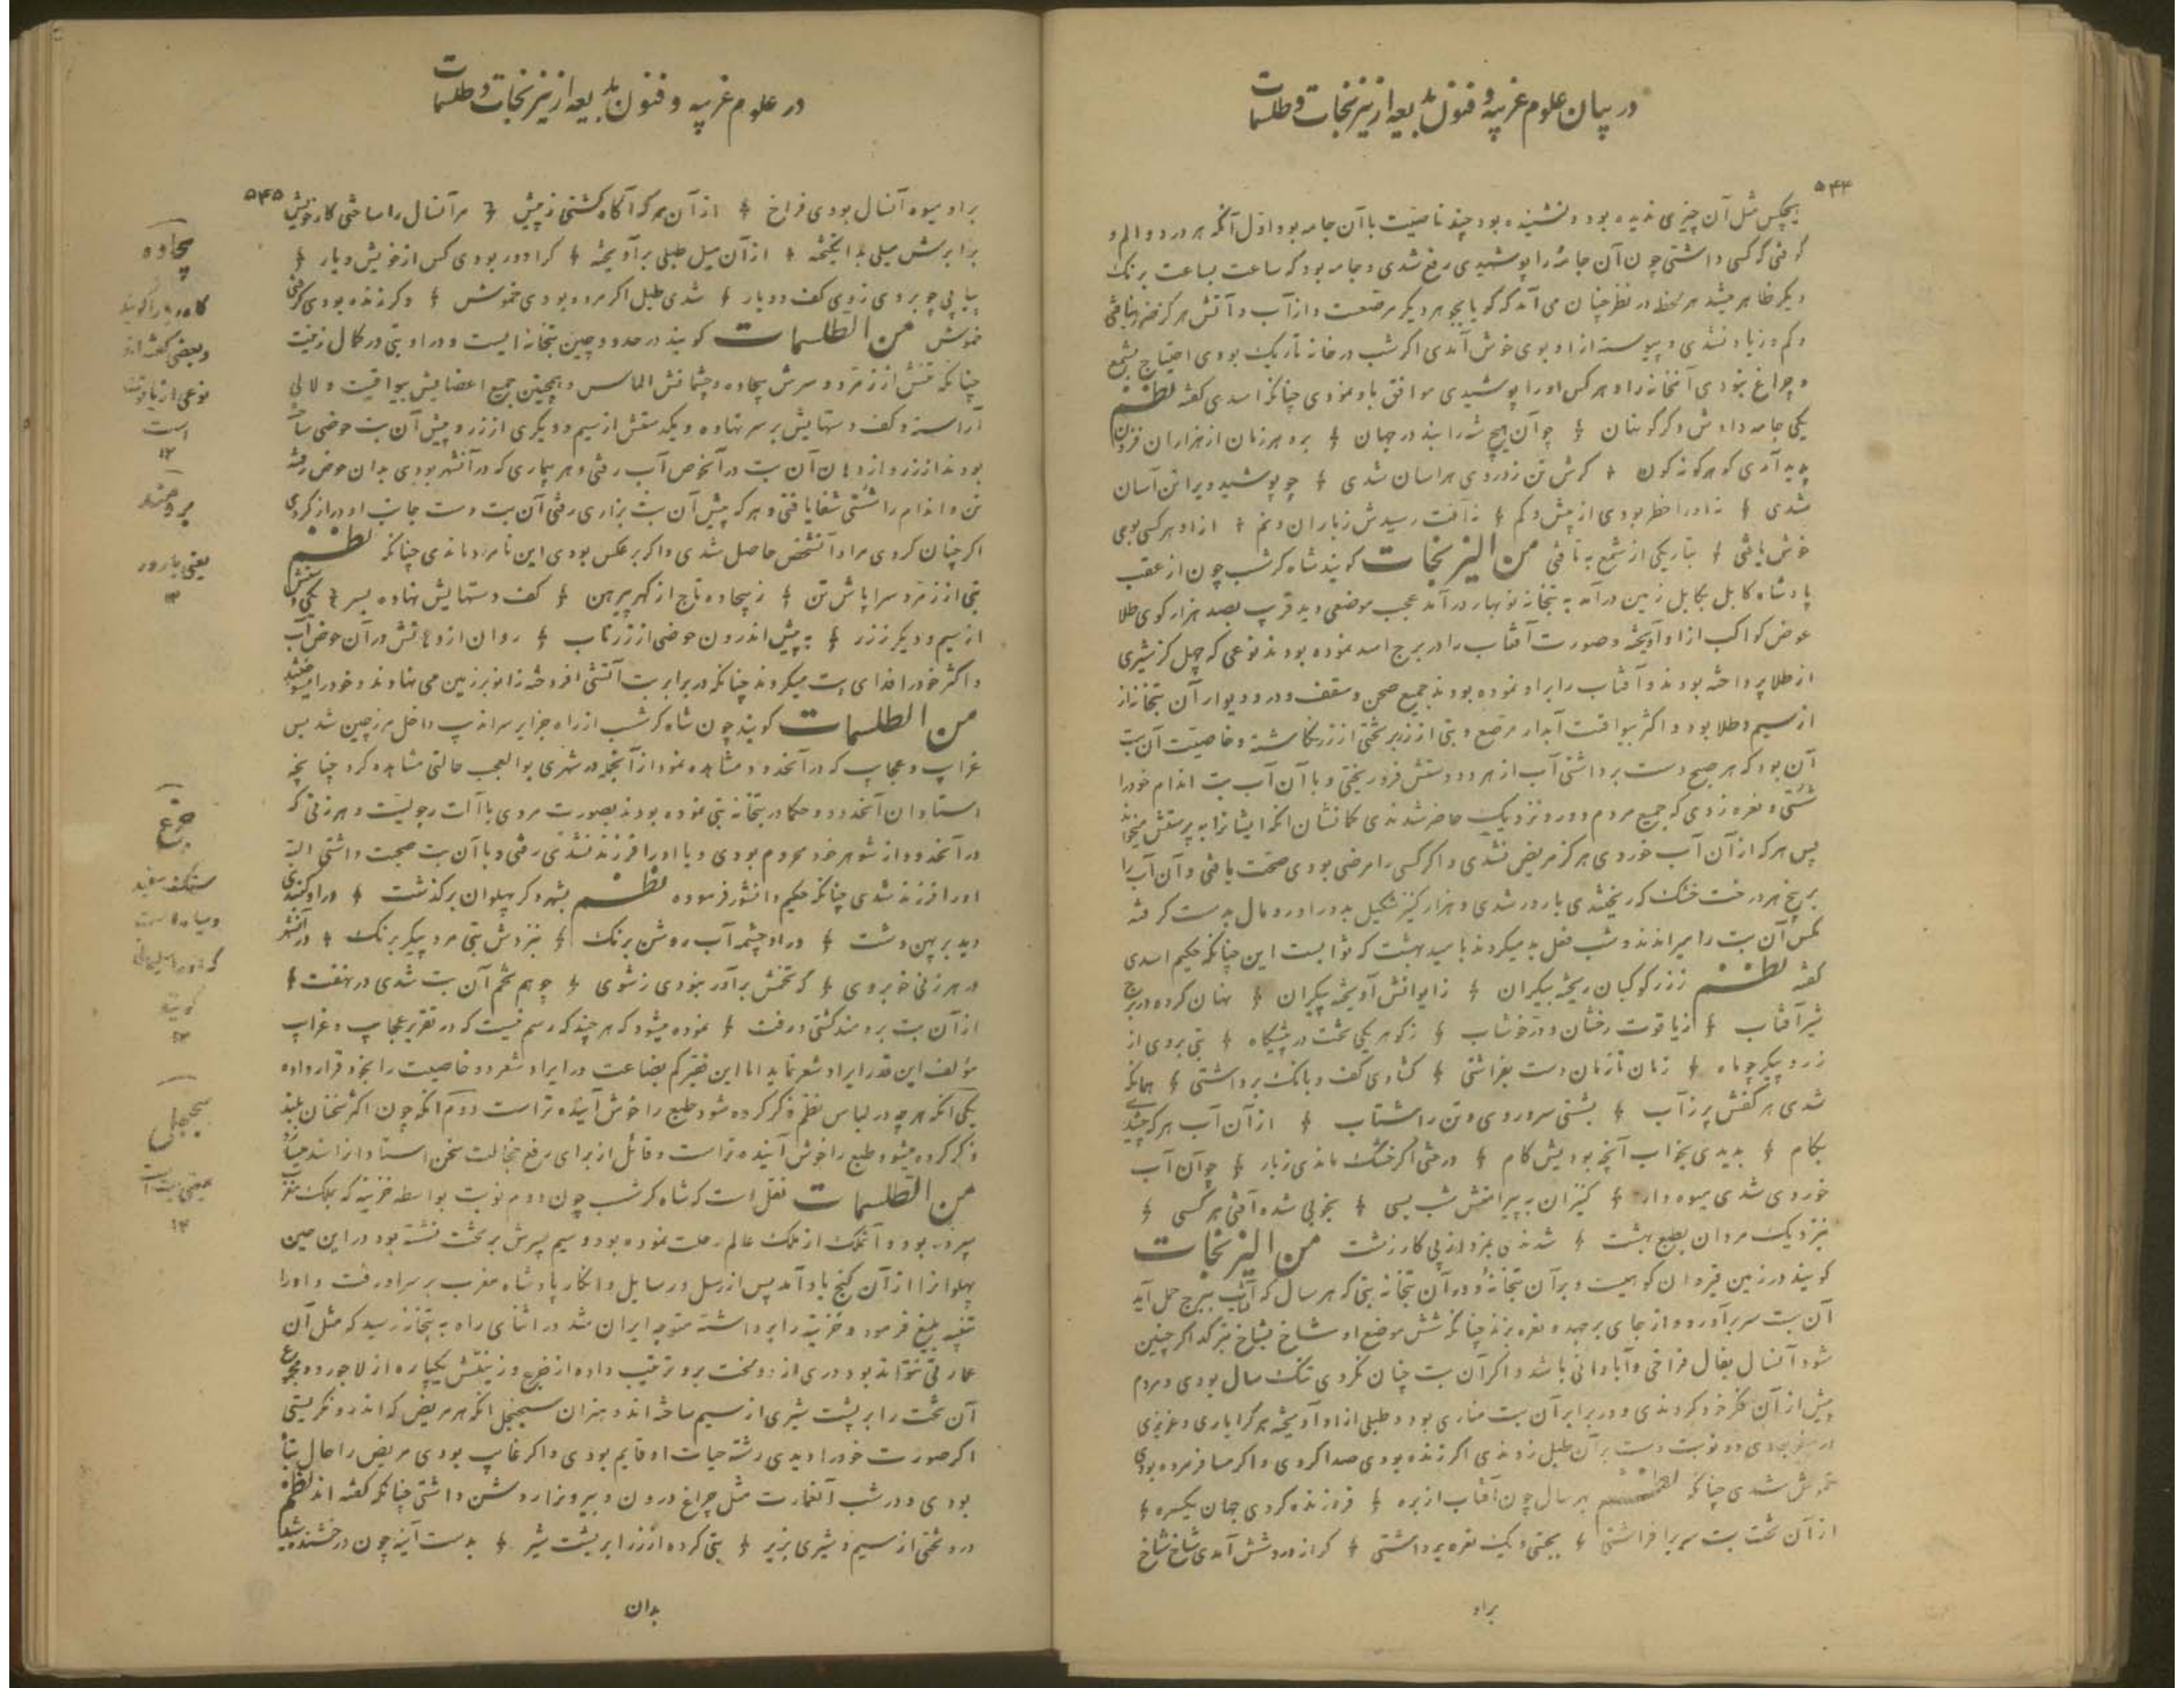 در بیان علوم غریبه و فنون بدیعه از نیرنجات و طلسمات
۵۴۴
هیچکس مثل آن چیزی ندیده بود و نشنیده بود چند خاصیت با آن جامه بود اول آنکه هر درد و الم و
کوفتی که کسی داشتی چون آن جامه را پوشیدی رفع شدی و جامه بود که ساعت بساعت برنک
دیکر ظاهر میشد هر لحظه در نظر چنان می آمد که کویا بجوهر دیکر مرصعست و از آب و آتش هرکز ضرر نیافتی
و کم و زیاد نشدی و پیوسته از او بوی خوش آمدی اکر شب در خانه تاریک بودی احتیاج بشمع
و چراغ نبودی آنخانه را و هر کس او را پوشیدی موافق با او نمودی چنانکه اسدی کفته نظم
یکی جامه دادش دکر کوهنان چو آن هیچ شه را نبد در جهان برو هر زمان از هزاران فزون
پدید آمدی کوهر کونه کون کرش تن ز دردی هراسان شدی چو پوشید ویرا تن آسان
شدی نه او را خطر بودی از پیش و کم نه آفت رسیدش ز باران و نم از او هر کسی بوی
خوش یافتی بتاریکی از شمع به تافتی من النیرنجات کویند شاه کرشسب چون از عقب
پادشاه کابل بکابل زمین درآمد به بتخانه نوبهار درآمد عجب موضعی دید قریب بصد هزار کوی طلا
عوض کواکب از او آویخته و صورت آفتاب را در برج اسد نموده بودند نوعی که چهل کز شیری
از طلا پرداخته بودند و آفتاب را بر او نموده بودند جمیع صحن و سقف و در و دیوار آن بتخانه از
از سیم و طلا بود و اکثر بیواقیت آبدار مرصع و بتی از زر بر تختی از زر نکاشته و خاصیت آن بت
آن بود که هر صبح دست برداشتی آب از هر دو دستش فرو ریختی و با آن آب بت اندام خود را
شستی و نعره زدی که جمیع مردم دور و نزدیک حاضر شدندی کمانشان آنکه ایشانرا به پرستش میخواند
پس هر که از آن آب خوردی هرکز مریض نشدی و اکر کسی را مرضی بودی صحت یافتی و آن آب را
بر بیخ هر درخت خشک که ریختندی بارور شدی و هزار کنیز شکیل بدور او رومال بدست کرفته
مکس آن بت را میراندند و شب فعل بد میکردند بامید بهشت که ثوابست این چنانکه حکیم اسدی
کفته نظم ز زر کوکبان ریخته بیکران ز ایوانش آویخته پیکران نهان کرده در برج
شیر آفتاب ز یاقوت رخشان و در خوشاب ز کوهر یکی تخت در پیشکاه بتی بروی از
زر و پیکر چو ماه زمان تا زمان دست بفراشتی کشادی کف و بانک برداشتی همانکه
شدی هر کفش پر ز آب بشستی سر و روی و تن را شتاب از آن آب هر که چشیدی
بکام بدیدی بخواب آنچه بودیش کام درختی اکر خشک ماندی ز بار چو آن آب
خوردی شدی میوه دار کنیزان به پیرامنش شب بسی بخوبی شده آفتی هر کسی
نزدیک مردان بطمع بهشت شدندی بمزد از پی کار زشت من النیرنجات
کویند در زمین قیروان کوهیست و بر آن بتخانه و در آن بتخانه بتی که هر سال که آفتاب ببرج حمل آید
آن بت سر برآورد و از جای برجهد و نعره بزند چنانکه شش موضع او شاخ بشاخ بترکد اکر چنین
شود آنسال بفال فراخی و آبادانی باشد و اکر آن بت چنان نکردی تنک سال بودی و مردم
پیش از آن فکر خود کردندی و در برابر آن بت مناری بود و طبلی از او آویخته هر کرا یاری و عزیزی
در سفر بودی دو نوبت دست بر آن طبل زدندی اکر زنده بودی صدا کردی و اکر مسافر مرده بودی
خموش شدی چنانکه نظم بهر سال چون آفتاب از بره فروزنده کردی جهان یکسره
از آن تخت بت سر برافراشتی بجستی و یک نعره برداشتی کر از درد شش آمدی شاخ شاخ
براو
در علوم غریبه و فنون بدیعه از نیرنجات و طلسمات
۵۴۵
براو میوه آنسال بودی فراخ از آن هر که آکاه کشتی ز پیش مر آنسال را ساختی کار خویش
برابرش میلی بد انکیخته از آن میل طبلی برآویخته کرا دور بودی کس از خویش و یار
بیاپی چو بر وی زدی کف دو بار شدی طبل اکر مرده بودی خموش وکر زنده بودی کرفتی
خموش من الطلسمات کویند در حدود چین بتخانه ایست و در او بتی در کمال زینت
چنانکه تنش از زمرد و سرش بیجاده و چشمانش الماس و همچنین جمیع اعضایش بیواقیت و لالی
آراسته و کف دستهایش بر سر نهاده و یکدستش از سیم و دیکری از زر و پیش آن بت حوضی ساخته
بودند از زر و از دهان آن بت در آنحوض آب رفتی و هر بیماری که در آنشهر بودی بدان حوض رفته
تن و اندام را شستی شفا یافتی و هر که پیش آن بت بزاری رفتی آن بت دست جانب او دراز کردی
اکر چنان کردی مراد آنشخص حاصل شدی و اکر برعکس بودی این نامراد ماندی چنانکه نظم
بتی از زمرد سراپاش تن ز بیجاده تاج از کهر پیرهن کف دستهایش نهاده بسر یکی دستش
از سیم و دیکر ز زر به پیش اندرون حوضی از زر ناب روان از دهانش در آن حوض آب
و اکثر خود را فدای بت میکردند چنانکه در برابر بت آتشی افروخته زانو بر زمین می نهادند و خود را میسوختند
من الطلسمات کویند چون شاه کرشسب از راه جزایر سراندیب داخل مرز چین شد بس
غرایب و عجایب که در آنحدود مشاهده نمود از آنجمله در شهری بوالعجب حالتی مشاهده کرد چنانچه
استادان آنحدود و حکما در بتخانه بتی نموده بودند بصورت مردی با آلت رجولیت و هر زنی که
در آنحدود از شوهر خود محروم بودی و یا او را فرزند نشدی رفتی و با آن بت صحبت داشتی البته
او را فرزند شدی چنانکه حکیم دانشور فرموده نظم بشهر دکر پهلوان برکذشت در او کنبدی
دید بر پهن دشت در او چشمه آب روشن برنک بنزدش بتی مرد پیکر برنک در آنشهر
هر زنی خوبروی که تخمش برآور نبودی ز شوی چو هم تخم آن بت شدی در نهفت
از آن بت برومند کشتی و رفت نموده میشود که هر چند که رسم نیست که در تقریر عجایب و غرایب
مؤلف این قدر ایراد شعر نماید اما این فقیر کم بضاعت در ایراد شعر دو خاصیت را بخود قرار داده
یکی آنکه هر چه در لباس نظم ذکر کرده شود طبع را خوش آینده تر است دوم آنکه چون اکثر سخنان بلند
ذکر کرده میشود طبع را خوش آینده تر است و قائل از برای رفع خجالت سخن استاد را سند میسازد
من الطلسمات نقل است که شاه کرشسب چون دوم نوبت بواسطه خزینه که بملک مغرب
سپرده بود و آنملک از ملک عالم رحلت نموده بود و سیم پسرش بر تخت نشسته بود در این حین
پهلوانرا از آن کنج یاد آمد پس از رسل و رسایل و انکار پادشاه مغرب بر سر او رفت و او را
تنبیه بلیغ فرمود و خزینه را برداشته متوجه ایران شد در اثنای راه به بتخانه رسید که مثل آن
عمارتی نتواند بود دری از دو لخت برو ترتیب داده از جزع و زمینش یکپاره از لاجورد و مجموع
آن تخت را بر پشت شیری از سیم ساخته اند و بزان سجنجل آنکه هر مریض که اندرو نکریستی
اکر صورت خود را دیدی رشته حیات او قایم بودی و اکر غایب بودی مریض را حال تباه
بودی و در شب آنعمارت مثل چراغ درون و بیرونرا روشن داشتی چنانکه کفته اند نظم
درو تختی از سیم و شیری بزیر بتی کرده از زر ابر پشت شیر بدست آینه چون درخشنده شید
بدان
بیجاده
کاه ربا را کویند
و بعضی کفته اند
نوعی از یاقوت
است
۱۲
برومند
یعنی بارور
۱۲
جزع
سنک سفید
و سیاه است
که او را سلیمانی
کویند
۱۲
سجنجل
۱۲